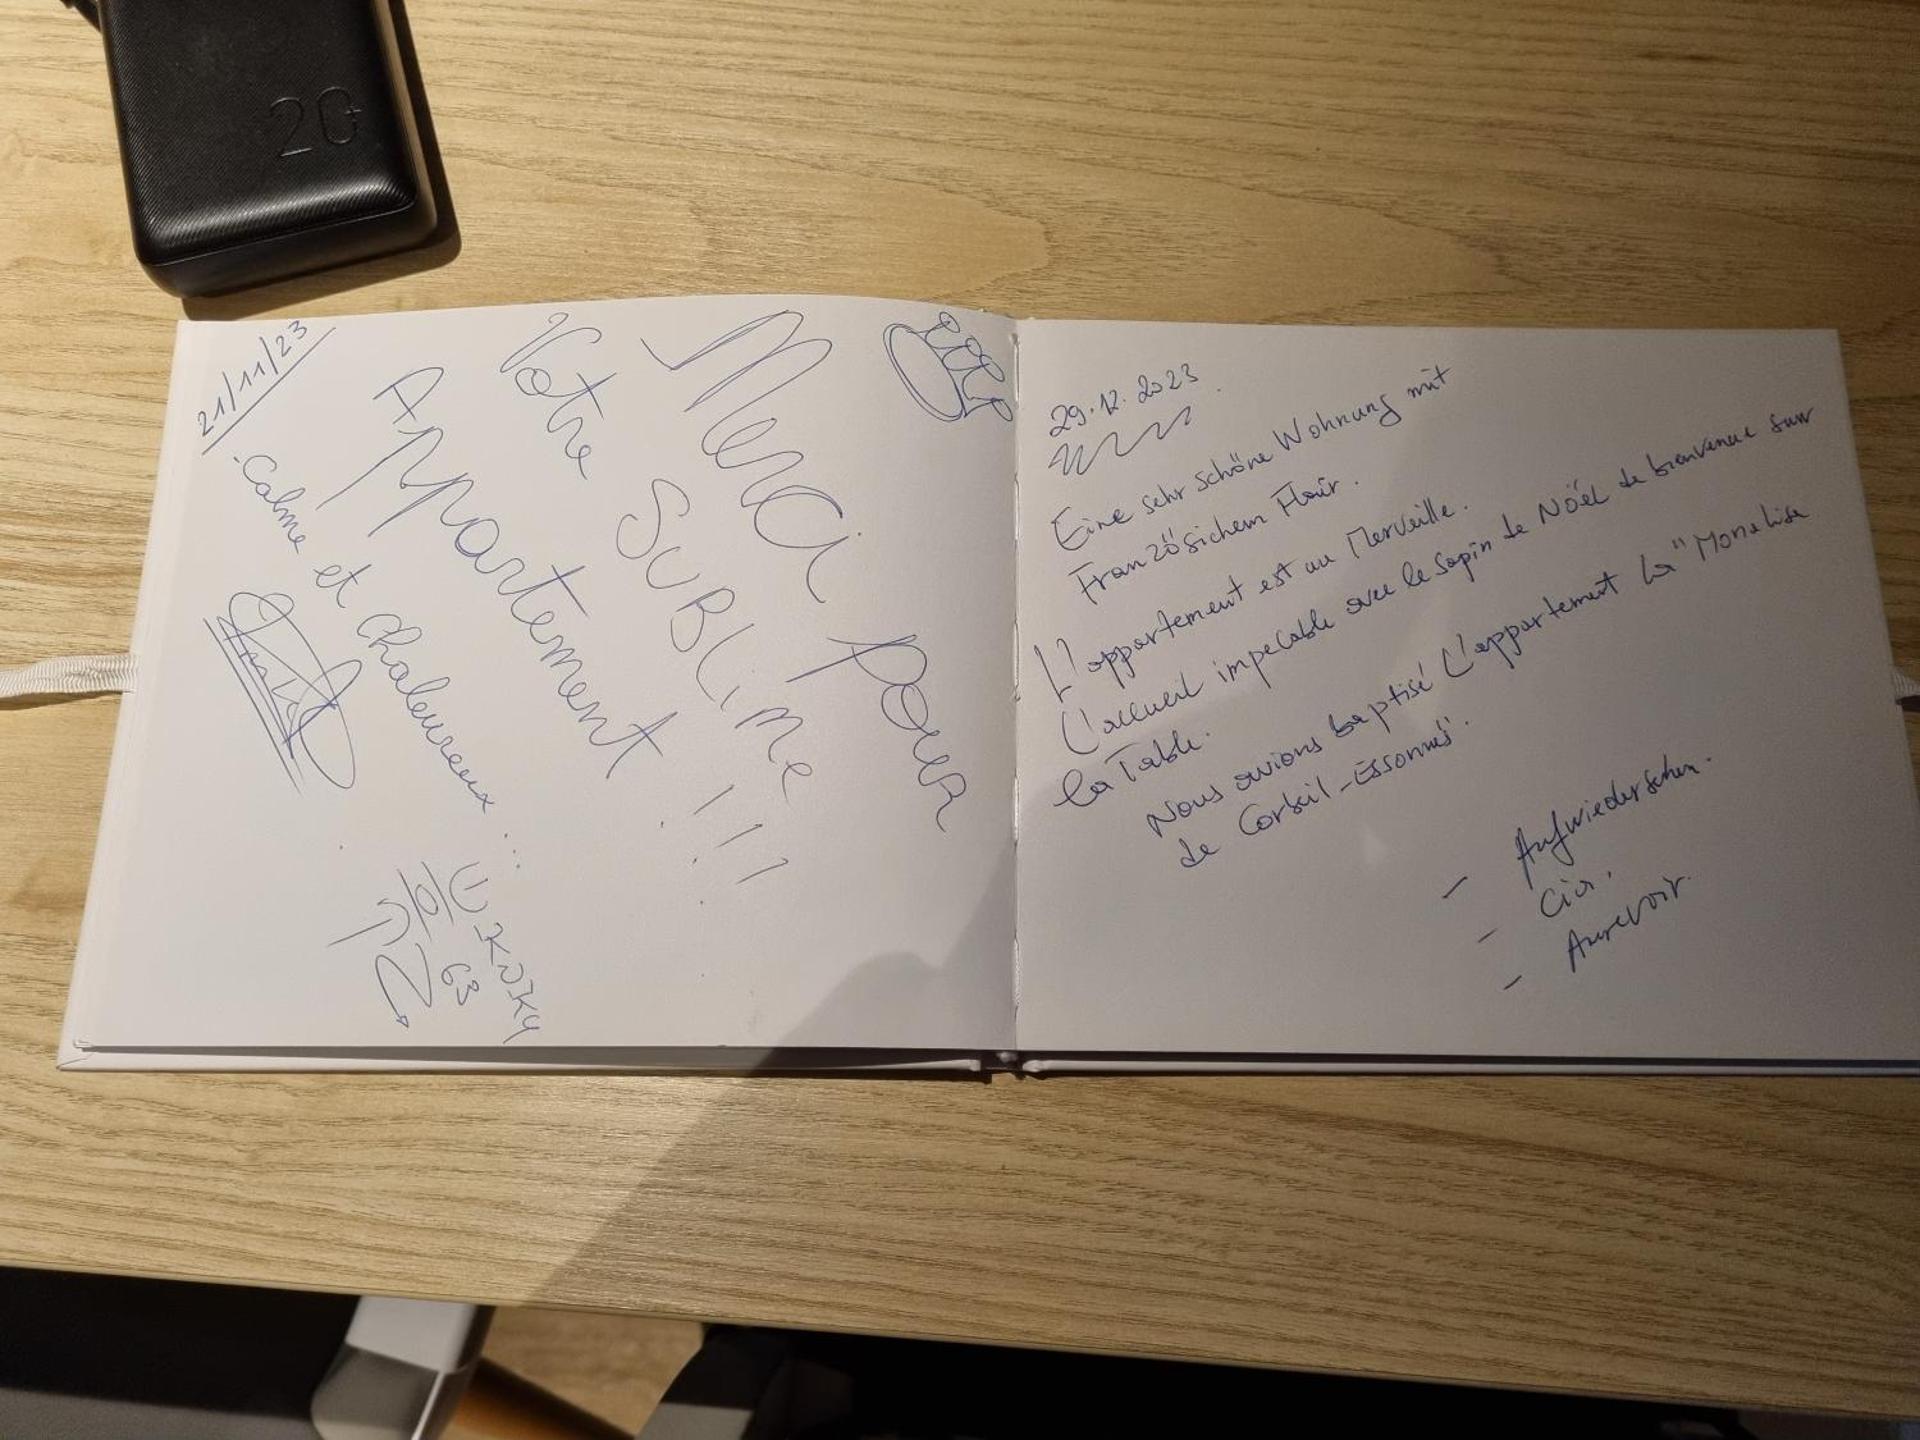 20
21/11/23
Merci pour
Votre SUBLime
Appartement !!!
-Calme et chaleureux...
63
29.12.2023
Eine sehr schöne Wohnung mit
Französichem Flair.
L'appartement est un Merveille.
L'accueil impecable avec le sapin de Nöel de bienvenue sur
la Table.
Nous avions baptisé L'appartement La "Monalisa
de Corbeil-Essonnes".
- Aufwiedersehen.
- Cia.
- Aurevoir.